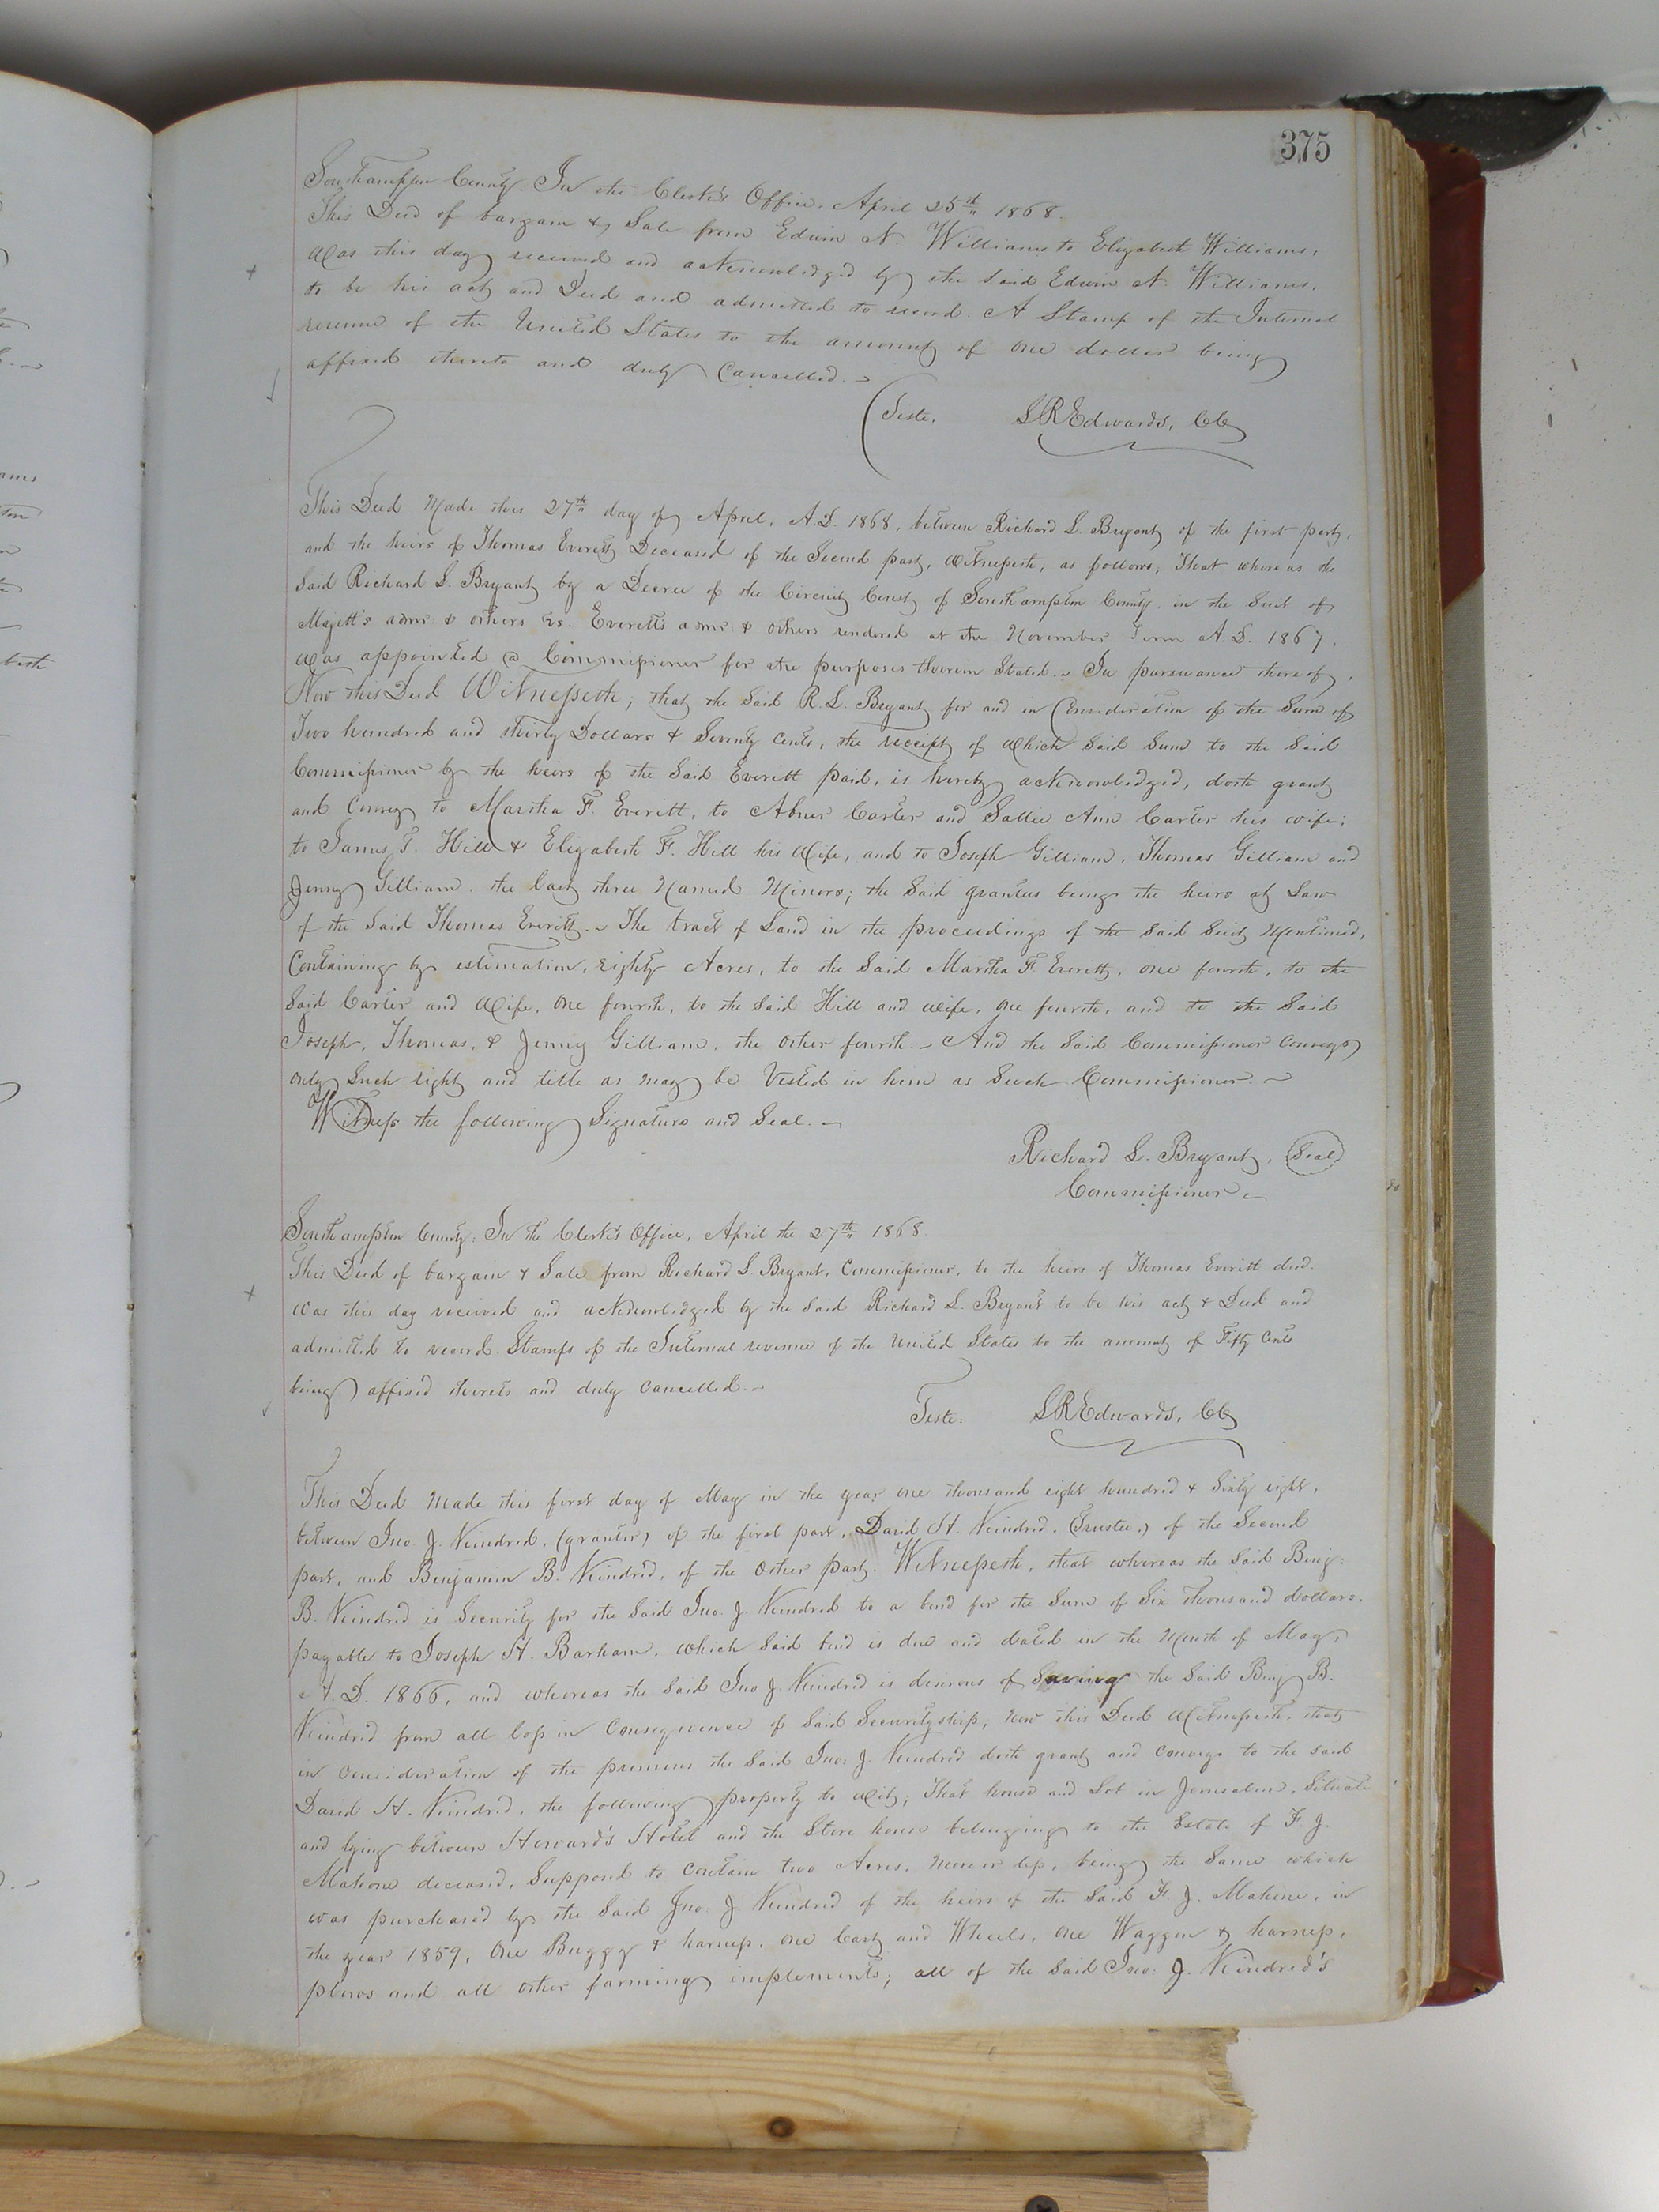 375
Southampton County. In the Clerk's Office. April 25th 1868.
This Deed of bargain & Sale from Edwin N. Williams to Elizabeth Williams,
Was this day received and acknowledged by the said Edwin N. Williams,
to be his act and Deed and admitted to record. A Stamp of the Internal
revenue of the United States to the amount of one dollar being
affixed thereto and duly Cancelled.
Teste, LREdwards, CC
This Deed Made this 27th day of April, A.D. 1868, between Richard L. Bryant of the first part,
and the heirs of Thomas Everett Deceased of the Second part, Witnesseth, as follows; That whereas the
Said Richard L. Bryant by a Decree of the Circuit Court of Southampton County in the Suit of
Majett's admr & others vs. Everett's admr & others rendered at the November Term A.D. 1867.
Was appointed a Commissioner for the purposes therein Stated. In pursuance thereof,
Now this Deed Witnesseth; that the Said R. L. Bryant for and in Consideration of the Sum of
Two hundred and thirty Dollars & Seventy Cents, the receipt of Which Said Sum to the Said
Commissioner by the heirs of the Said Everitt paid, is hereby acknowledged, doth grant
and Convey to Martha F. Everitt, to Abner Carter and Sallie Ann Carter his wife;
to James T. Hill & Elizabeth F. Hill his Wife, and to Joseph Gilliam, Thomas Gilliam and
Jenny Gilliam. the last three Named Minors; the Said grantees being the heirs at Law
of the Said Thomas Everitt. The tract of Land in the proceedings of the Said Suit Mentioned,
Containing by estimation, Eighty Acres, to the Said Martha F. Everitt, one fourth, to the
Said Carter and Wife, One fourth, to the Said Hill and wife, one fourth, and to the Said
Joseph, Thomas, & Jenny Gilliam, the other fourth. And the Said Commissioner Conveys
only Such right and title as may be Vested in him as Such Commissioner.
Witness the following Signature and Seal.
Richard L. Bryant, Seal
Commissioner
Southampton County: In the Clerk's Office, April the 27th 1868.
This Deed of bargain & Sale from Richard L. Bryant, Commissioner, to the heirs of Thomas Everitt decd.
Was this day received and acknowledged by the Said Richard L. Bryant to be his act & Deed and
admitted to record. Stamps of the Internal revenue of the United States to the amount of Fifty Cents
being affixed thereto and duly Cancelled.
Teste: LREdwards, CC
This Deed Made this first day of May in the year one thousand eight hundred & Sixty eight,
between Jno. J. Kindred, (grantor) of the first part, David H. Kindred, (Trustee,) of the Second
part, and Benjamin B. Kindred, of the Other part. Witnesseth, that whereas the Said Benj:
B. Kindred is Security for the Said Jno. J. Kindred to a bond for the Sum of Six thousand dollars,
payable to Joseph H. Barham, which Said bond is due and dated in the Month of May,
A. D. 1866, and whereas the Said Jno. J. Kindred is desirous of Saving the Said Benj B.
Kindred from all loss in Consequence of Said Securityship, Now this Deed Witnesseth, that
in consideration of the premises the Said Jno: J. Kindred doth grant and Convey to the said
David H. Kindred, the following property to Wit; That house and Lot in Jerusalem, Situate
and lying between Howard's Hotel and the Store house belonging to the Estate of F. J.
Mahone deceased, Supposed to Contain two Acres, more or less, being the Same which
was purchased by the Said Jno: J. Kindred of the heirs of the Said F. J. Mahone, in
the year 1859, One Buggy & harness, One Cart and Wheels, One Waggon & harness,
plows and all other farming implements; all of the Said Jno: J. Kindred's